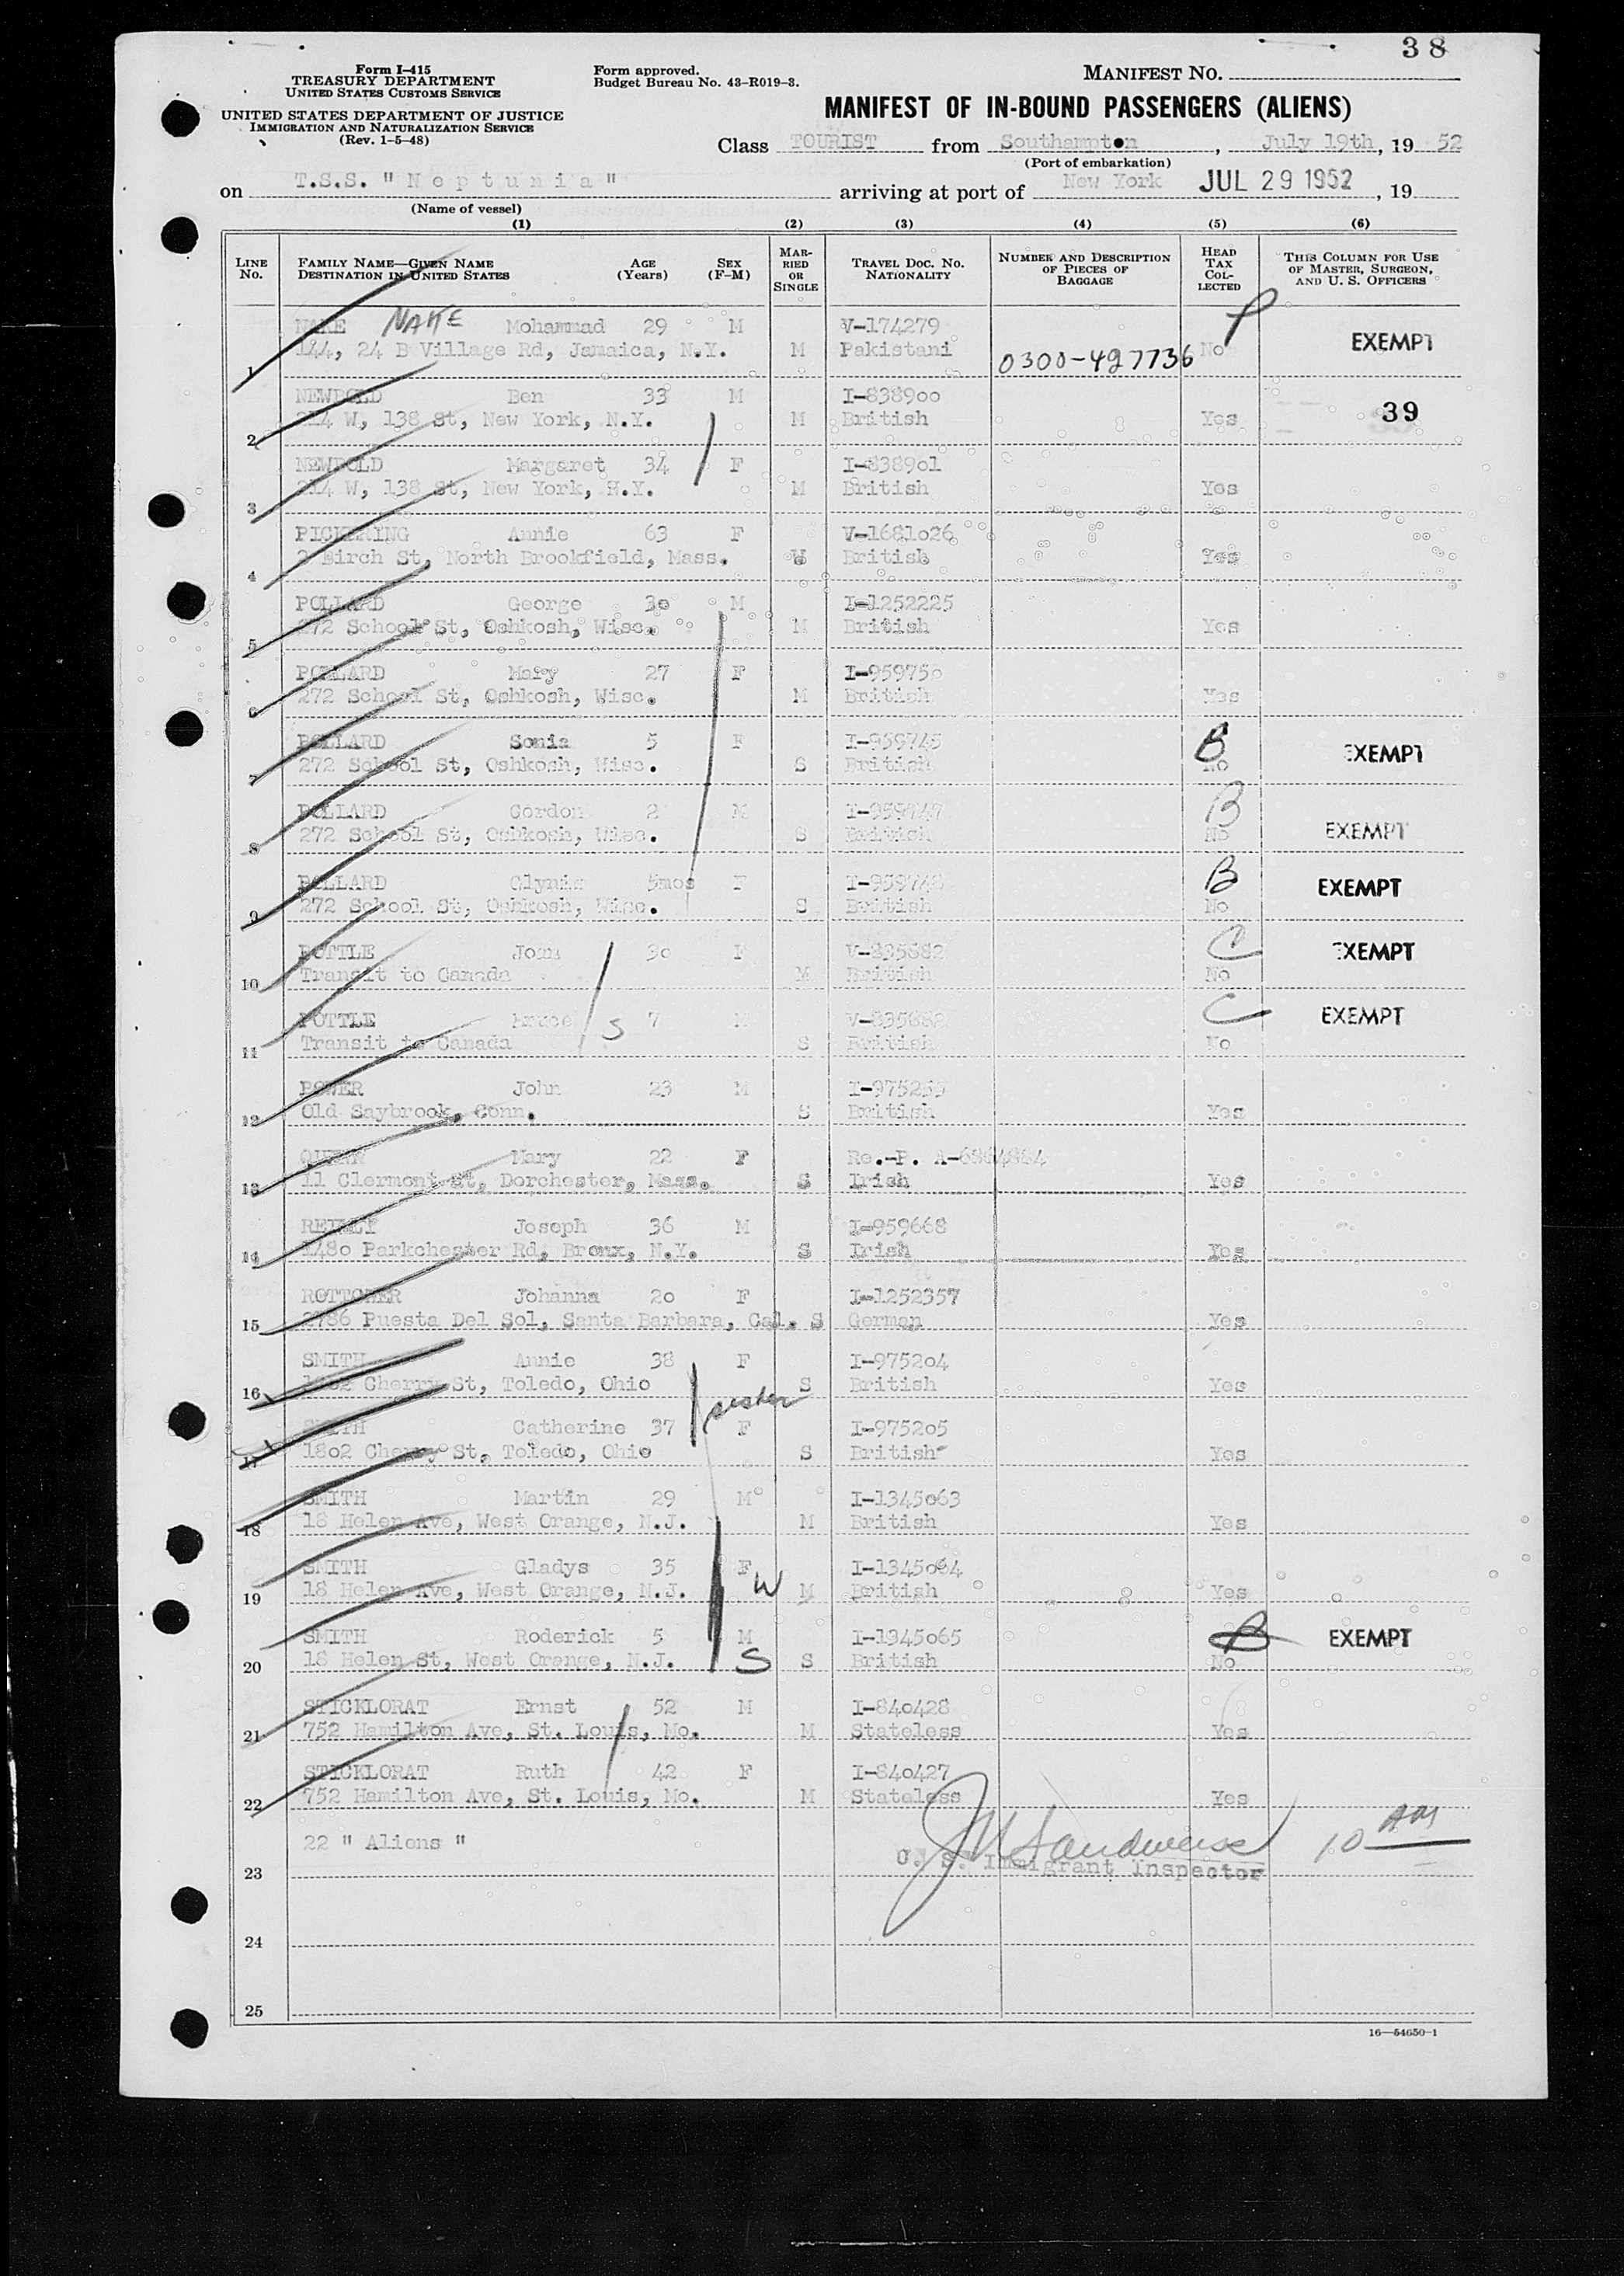 38
Form I-415
TREASURY DEPARTMENT
UNITED STATES CUSTOMS SERVICE
UNITED STATES DEPARTMENT OF JUSTICE
IMMIGRATION AND NATURALIZATION SERVICE
(Rev. 1-5-48)
Form approved.
Budget Bureau No. 43-R019-3.
MANIFEST NO.
MANIFEST OF IN-BOUND PASSENGERS (ALIENS)
Class TOURIST from Southampton, July 19th, 19 52
(Port of embarkation)
on T.S.S. "Neptunia" arriving at port of New York JUL 29 1952, 19
(Name of vessel)
(1) (2) (3) (4) (5) (6)
LINE No. FAMILY NAME—GIVEN NAME DESTINATION IN UNITED STATES AGE (Years) SEX (F-M) MARRIED OR SINGLE TRAVEL DOC. NO. NATIONALITY NUMBER AND DESCRIPTION OF PIECES OF BAGGAGE HEAD TAX COLLECTED THIS COLUMN FOR USE OF MASTER, SURGEON, AND U. S. OFFICERS
NAKE NAKE Mohammad 29 M V-174279
1 144, 24 B Village Rd, Jamaica, N.Y. M Pakistani 0300-427736 No EXEMPT
NEWBOLD Ben 33 M I-838900 39
2 214 W, 138 St, New York, N.Y. M British Yes
NEWBOLD Margaret 34 F I-838901
3 214 W, 138 St, New York, N.Y. M British Yes
PICKERING Annie 63 F V-1681026
4 2 Birch St, North Brookfield, Mass. W British Yes
POLLARD George 30 M I-1252225
5 272 School St, Oshkosh, Wisc. M British Yes
POLLARD Mary 27 F I-959750
6 272 School St, Oshkosh, Wisc. M British Yes
POLLARD Sonia 5 F I-959745 B EXEMPT
7 272 School St, Oshkosh, Wisc. S British No
POLLARD Gordon 2 M I-959747 B
8 272 School St, Oshkosh, Wisc. S British No EXEMPT
POLLARD Glynis 5mos F B EXEMPT
9 272 School St, Oshkosh, Wisc. S British No
POTTLE Joan 30 F V-835682 C EXEMPT
10 Transit to Canada M British No
POTTLE Bruce S 7 M V-835682 C EXEMPT
11 Transit to Canada S British No
POWER John 23 M
12 Old Saybrook, Conn. S British Yes
Mary 22 F Re.-P.
13 11 Clermont St, Dorchester, Mass. S Irish Yes
REILLY Joseph 36 M I-959668
14 1480 Parkchester Rd, Bronx, N.Y. S Irish Yes
ROTTGBER Johanna 20 F I-1252357
15 2786 Puesta Del Sol, Santa Barbara, Cal. S German Yes
SMITH Annie 38 F I-975204
16 1802 Cherry St, Toledo, Ohio S British Yes
sister
SMITH Catherine 37 F I-975205
17 1802 Cherry St, Toledo, Ohio S British Yes
SMITH Martin 29 M I-1345063
18 18 Helen Ave, West Orange, N.J. M British Yes
SMITH Gladys 35 F I-1345064
19 18 Helen Ave, West Orange, N.J. W M British Yes
SMITH Roderick 5 M I-1345065 B EXEMPT
20 18 Helen St, West Orange, N.J. S S British No
STICKLORAT Ernst 52 M I-840428
21 752 Hamilton Ave, St. Louis, Mo. M Stateless Yes
STICKLORAT Ruth 42 F I-840427
22 752 Hamilton Ave, St. Louis, Mo. M Stateless Yes
22 " Aliens " 10 AM
23 U. S. Immigrant Inspector
24
25
16—54650-1